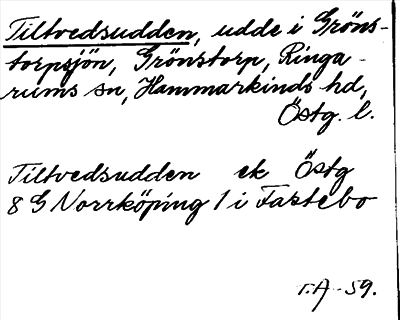 Tiltvedsudden, udde i Gröns-
torpsjön, Grönstorp, Ringa-
rums sn, Hammarkinds hd,
Östg. l.
Tiltvedsudden ek Östg
8 G Norrköping 1 i Fastebo
r.A -59.